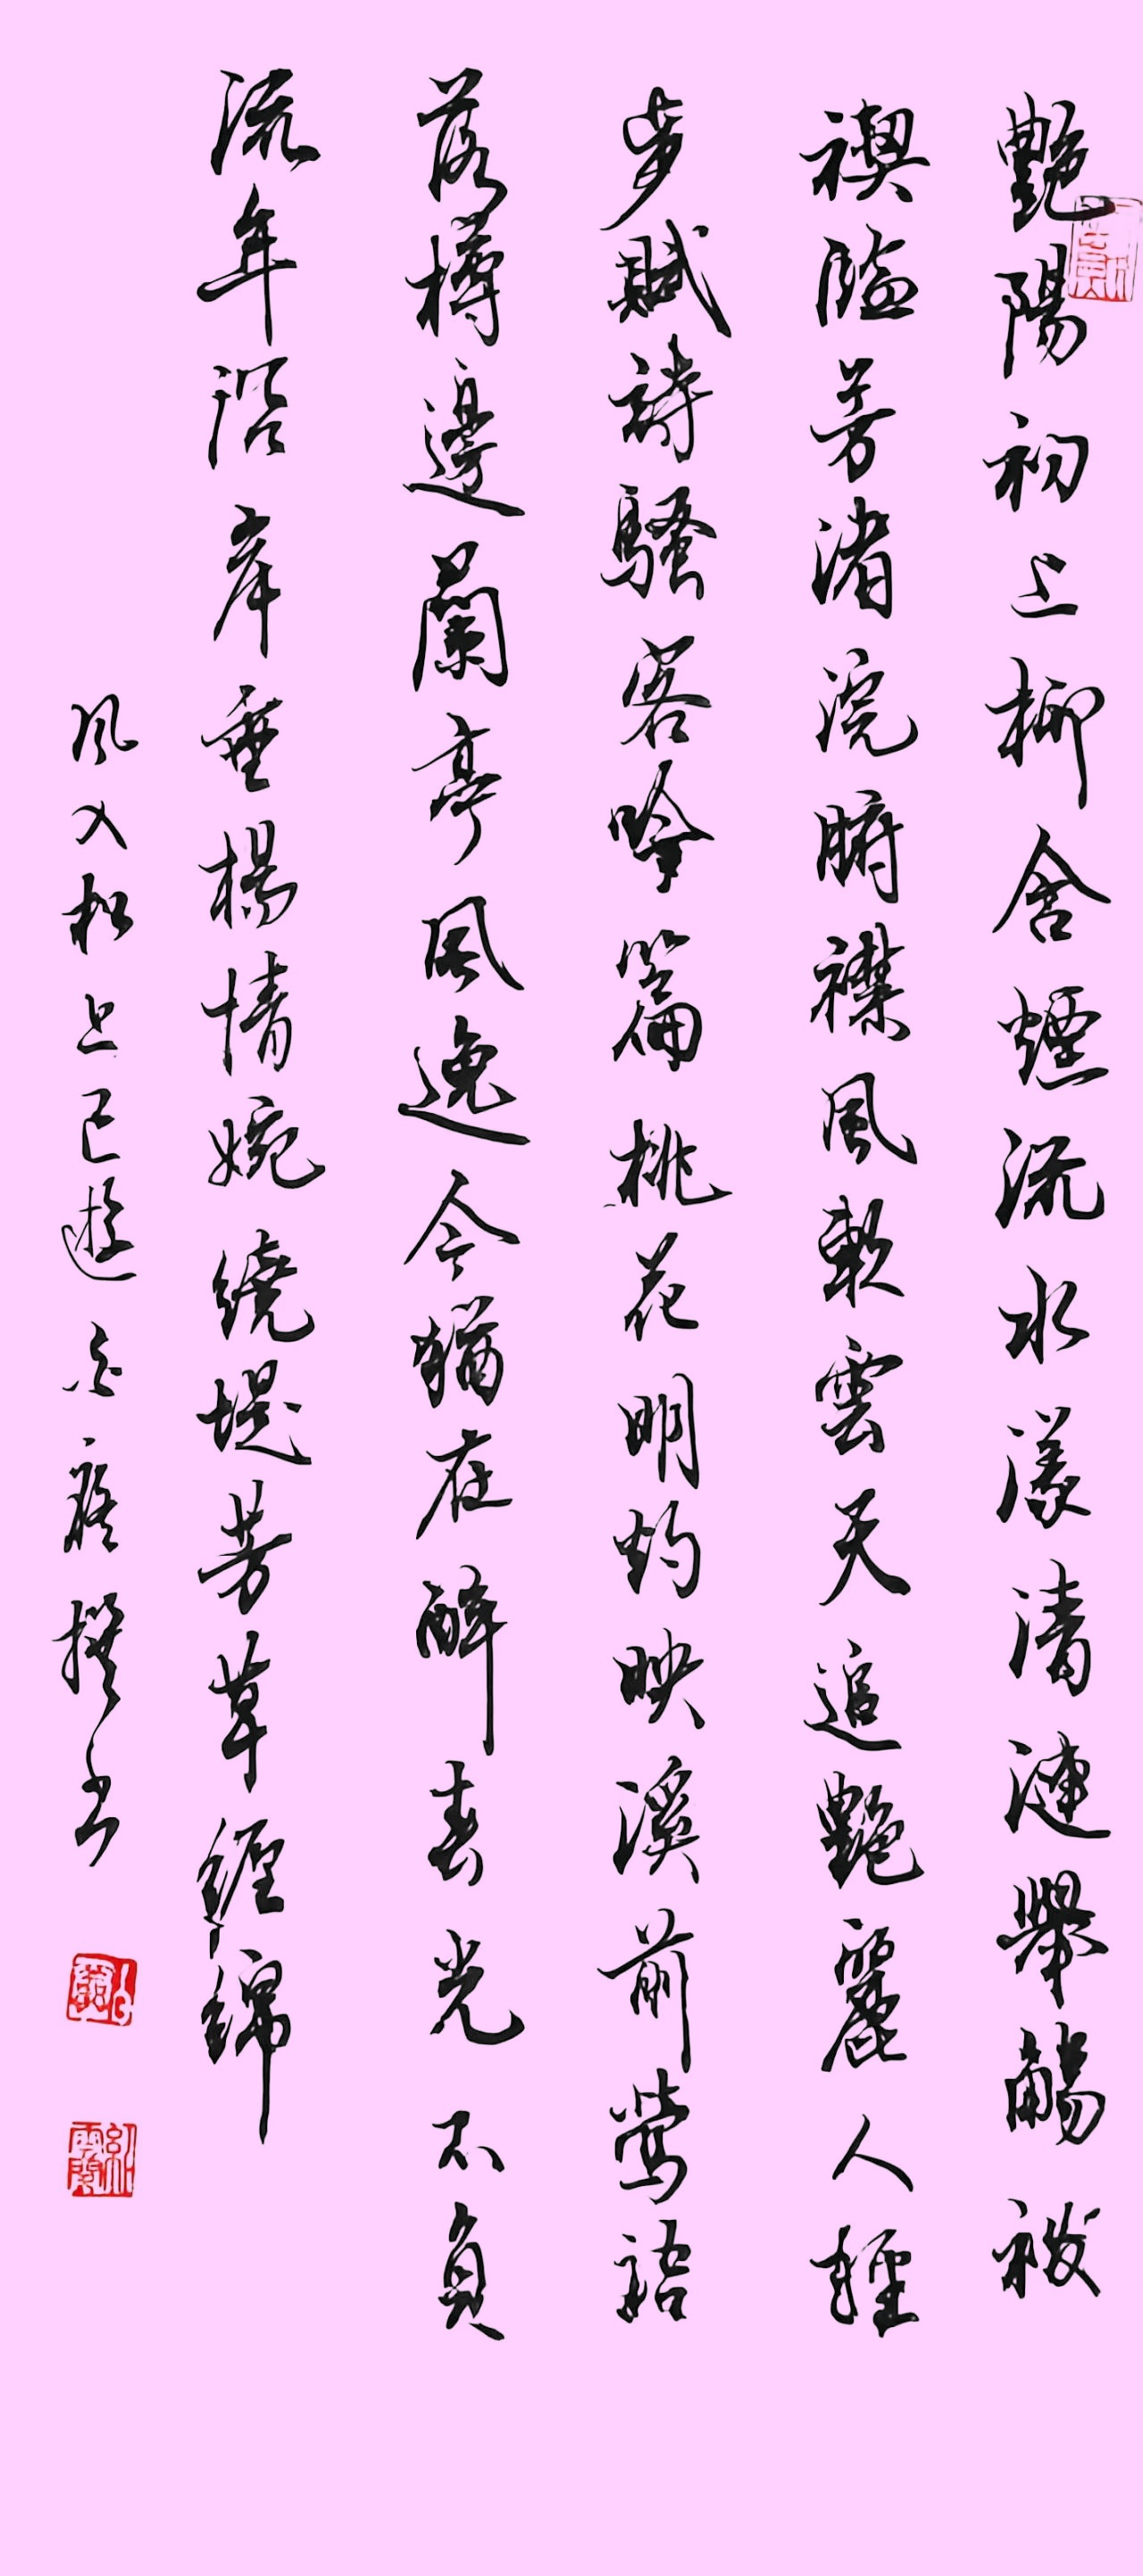 艷陽初上柳含煙流水漾清漣舉觴祓
禊臨芳渚浣腑襟風軟雲天追艷麗人輕
步賦詩騷客吟篇桃花明灼映溪前鶯語
落樽邊蘭亭風逸今猶在醉春光不負
流年沿岸垂楊情婉繞堤芳草纏綿
風入松上巳遊 撰書